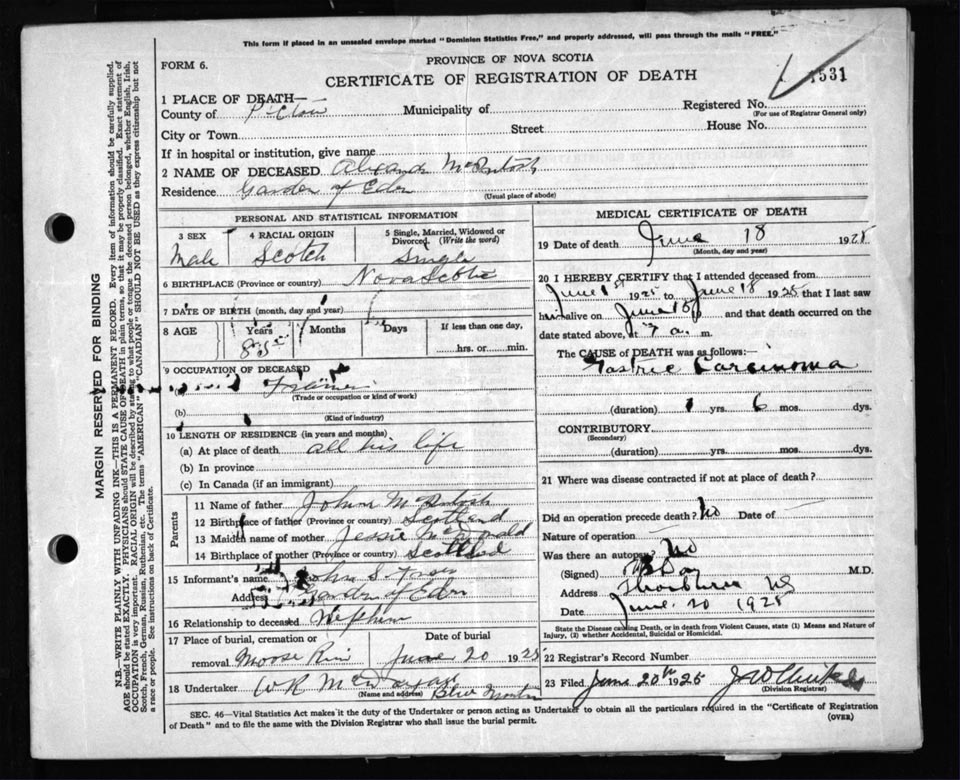 This form if placed in an unsealed envelope marked "Dominion Statistics Free," and properly addressed, will pass through the mails "FREE."
FORM 6.
PROVINCE OF NOVA SCOTIA
CERTIFICATE OF REGISTRATION OF DEATH
531
1 PLACE OF DEATH—
County of Pictou Municipality of Registered No.
(For use of Registrar General only)
City or Town Street House No.
If in hospital or institution, give name
2 NAME OF DECEASED McIntosh
Residence Garden of Eden
(Usual place of abode)
PERSONAL AND STATISTICAL INFORMATION
3 SEX 4 RACIAL ORIGIN 5 Single, Married, Widowed or Divorced. (Write the word)
Male Scotch Single
6 BIRTHPLACE (Province or country) Nova Scotia
7 DATE OF BIRTH (month, day and year)
8 AGE Years Months Days If less than one day,
85 hrs. or min.
9 OCCUPATION OF DECEASED
(a) Farmer
(Trade or occupation or kind of work)
(b)
(Kind of industry)
10 LENGTH OF RESIDENCE (in years and months)
(a) At place of death all his life
(b) In province
(c) In Canada (if an immigrant)
Parents
11 Name of father John McIntosh
12 Birthplace of father (Province or country) Scotland
13 Maiden name of mother Jessie
14 Birthplace of mother (Province or country) Scotland
15 Informant's name John S.
Address Garden of Eden
16 Relationship to deceased Nephew
17 Place of burial, cremation or removal. Date of burial
Moose River June 20 1925
18 Undertaker W R
(Name and address) Blue Mountain
MEDICAL CERTIFICATE OF DEATH
19 Date of death June 18 1925
(Month, day and year)
20 I HEREBY CERTIFY that I attended deceased from
June 1st 1925 to June 18 1925 that I last saw
him alive on June and that death occurred on the
date stated above, at 7 a. m.
The CAUSE of DEATH was as follows:—
Gastric Carcinoma
(duration) 1 yrs. 6 mos. dys.
CONTRIBUTORY
(Secondary)
(duration) yrs. mos. dys.
21 Where was disease contracted if not at place of death?
Did an operation precede death? No Date of
Nature of operation
Was there an autopsy No
(Signed) M.D.
Address Thorburn NS
Date June 20 1925
State the Disease causing Death, or in death from Violent Causes, state (1) Means and Nature of
Injury, (2) whether Accidental, Suicidal or Homicidal.
22 Registrar's Record Number
23 Filed June 20th 1925
(Division Registrar)
SEC. 46—Vital Statistics Act makes it the duty of the Undertaker or person acting as Undertaker to obtain all the particulars required in the "Certificate of Registration
of Death" and to file the same with the Division Registrar who shall issue the burial permit.
(OVER)
MARGIN RESERVED FOR BINDING
N.B.—WRITE PLAINLY WITH UNFADING INK—THIS IS A PERMANENT RECORD. Every item of information should be carefully supplied.
AGE should be stated EXACTLY. PHYSICIANS should STATE CAUSE OF DEATH in plain terms, so that it may be properly classified. Exact statement of
OCCUPATION is very important. RACIAL ORIGIN will be described by stating to what people or tongue the deceased person belonged, whether English, Irish,
Scotch, French, German, Russian, Ruthenian, etc. The terms "AMERICAN" or "CANADIAN" SHOULD NOT BE USED as they express citizenship but not
a race or people. See instructions on back of Certificate.